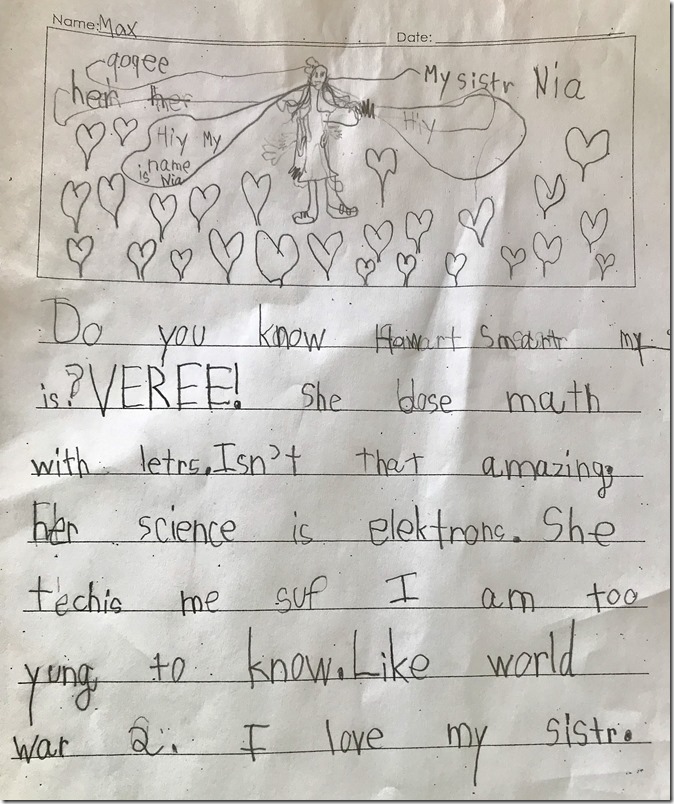 Name: Max
Date:
My sistr Nia
Hiy My
name
is Nia
Hiy
Do you know my
is? VEREE! She dose math
with letrs. Isn't that amazing.
Her science is elektrons. She
techis me suf I am too
yung to know. Like world
war 2. I love my sistr.